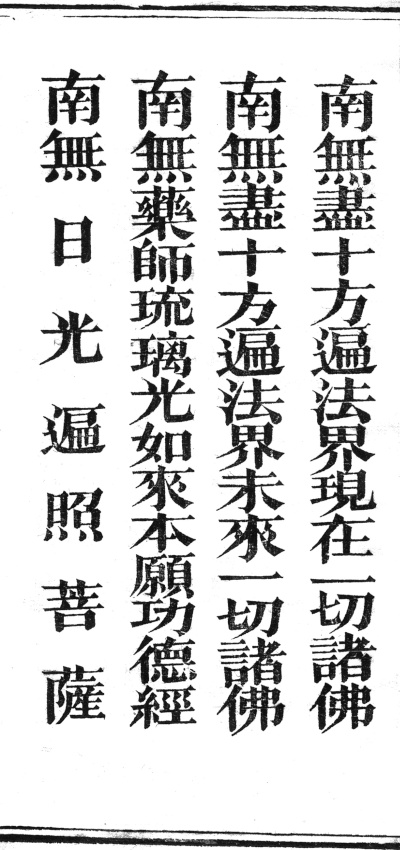 南無盡十方遍法界現在一切諸佛
南無盡十方遍法界未來一切諸佛
南無藥師琉璃光如來本願功德經
南無日光遍照菩薩